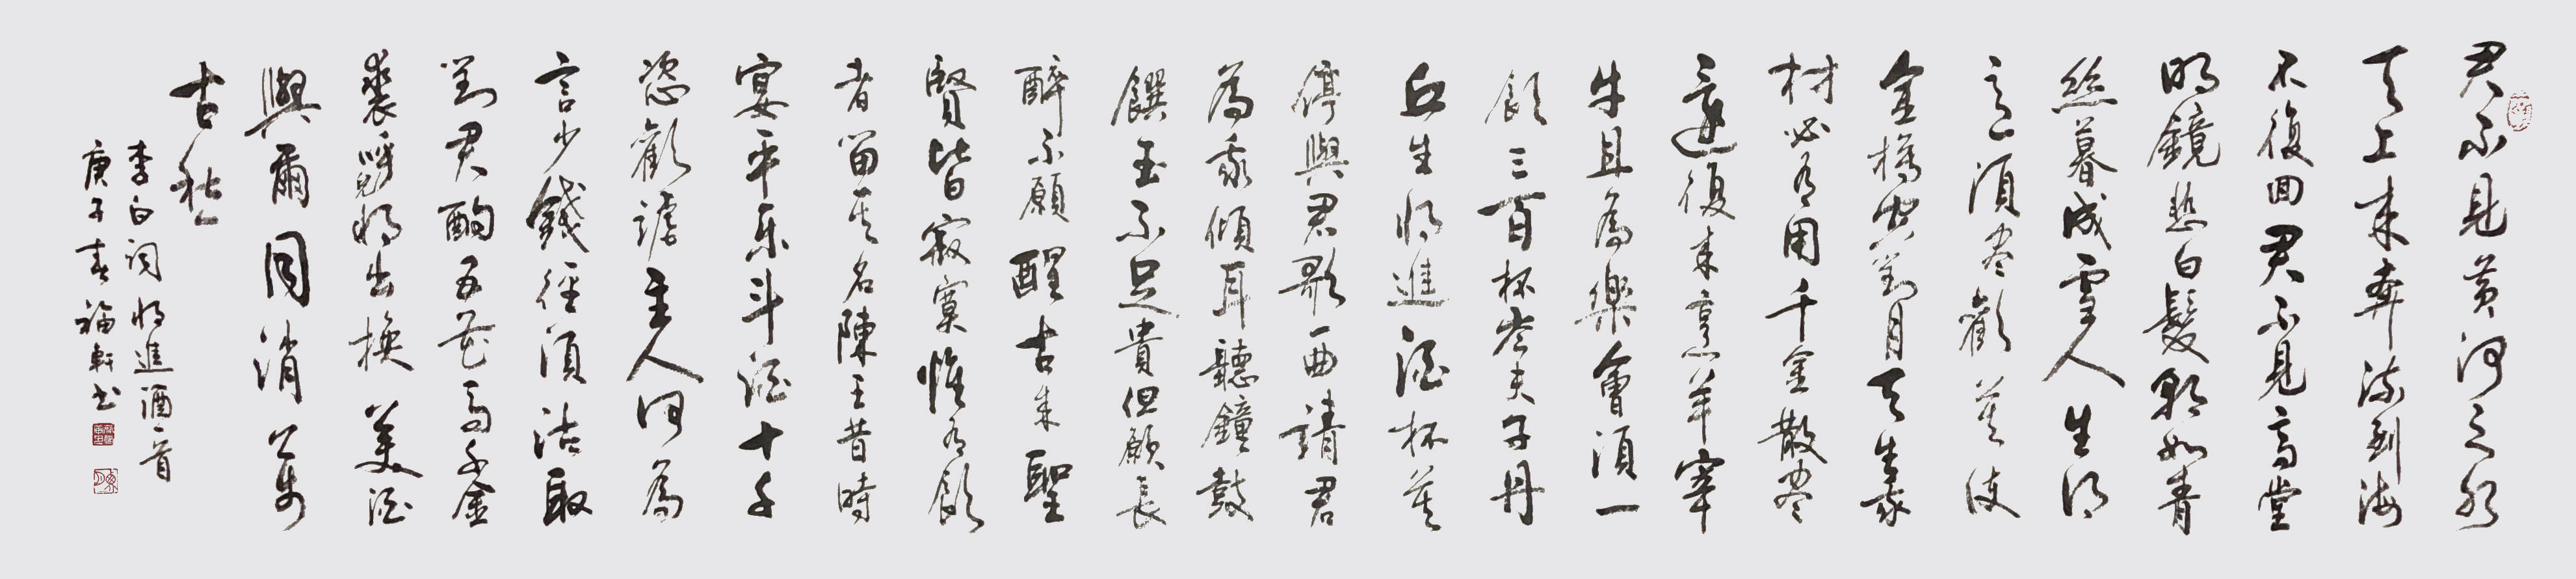 君不見黃河之水
天上來奔流到海
不復回君不見高堂
明鏡悲白髮朝如青
絲暮成雪人生得
意須盡歡莫使
金樽空對月天生我
材必有用千金散盡
還復來烹羊宰
牛且為樂會須一
飲三百杯岑夫子丹
丘生將進酒杯莫
停與君歌一曲請君
為我傾耳聽鐘鼓
饌玉不足貴但願長
醉不願醒古來聖
賢皆寂寞惟有飲
者留其名陳王昔時
宴平樂斗酒十千
恣歡謔主人何為
言少錢徑須沽取
對君酌五花馬千金
裘呼兒將出換美酒
與爾同消萬
古愁
李白詞將進酒一首
庚子春福軒书